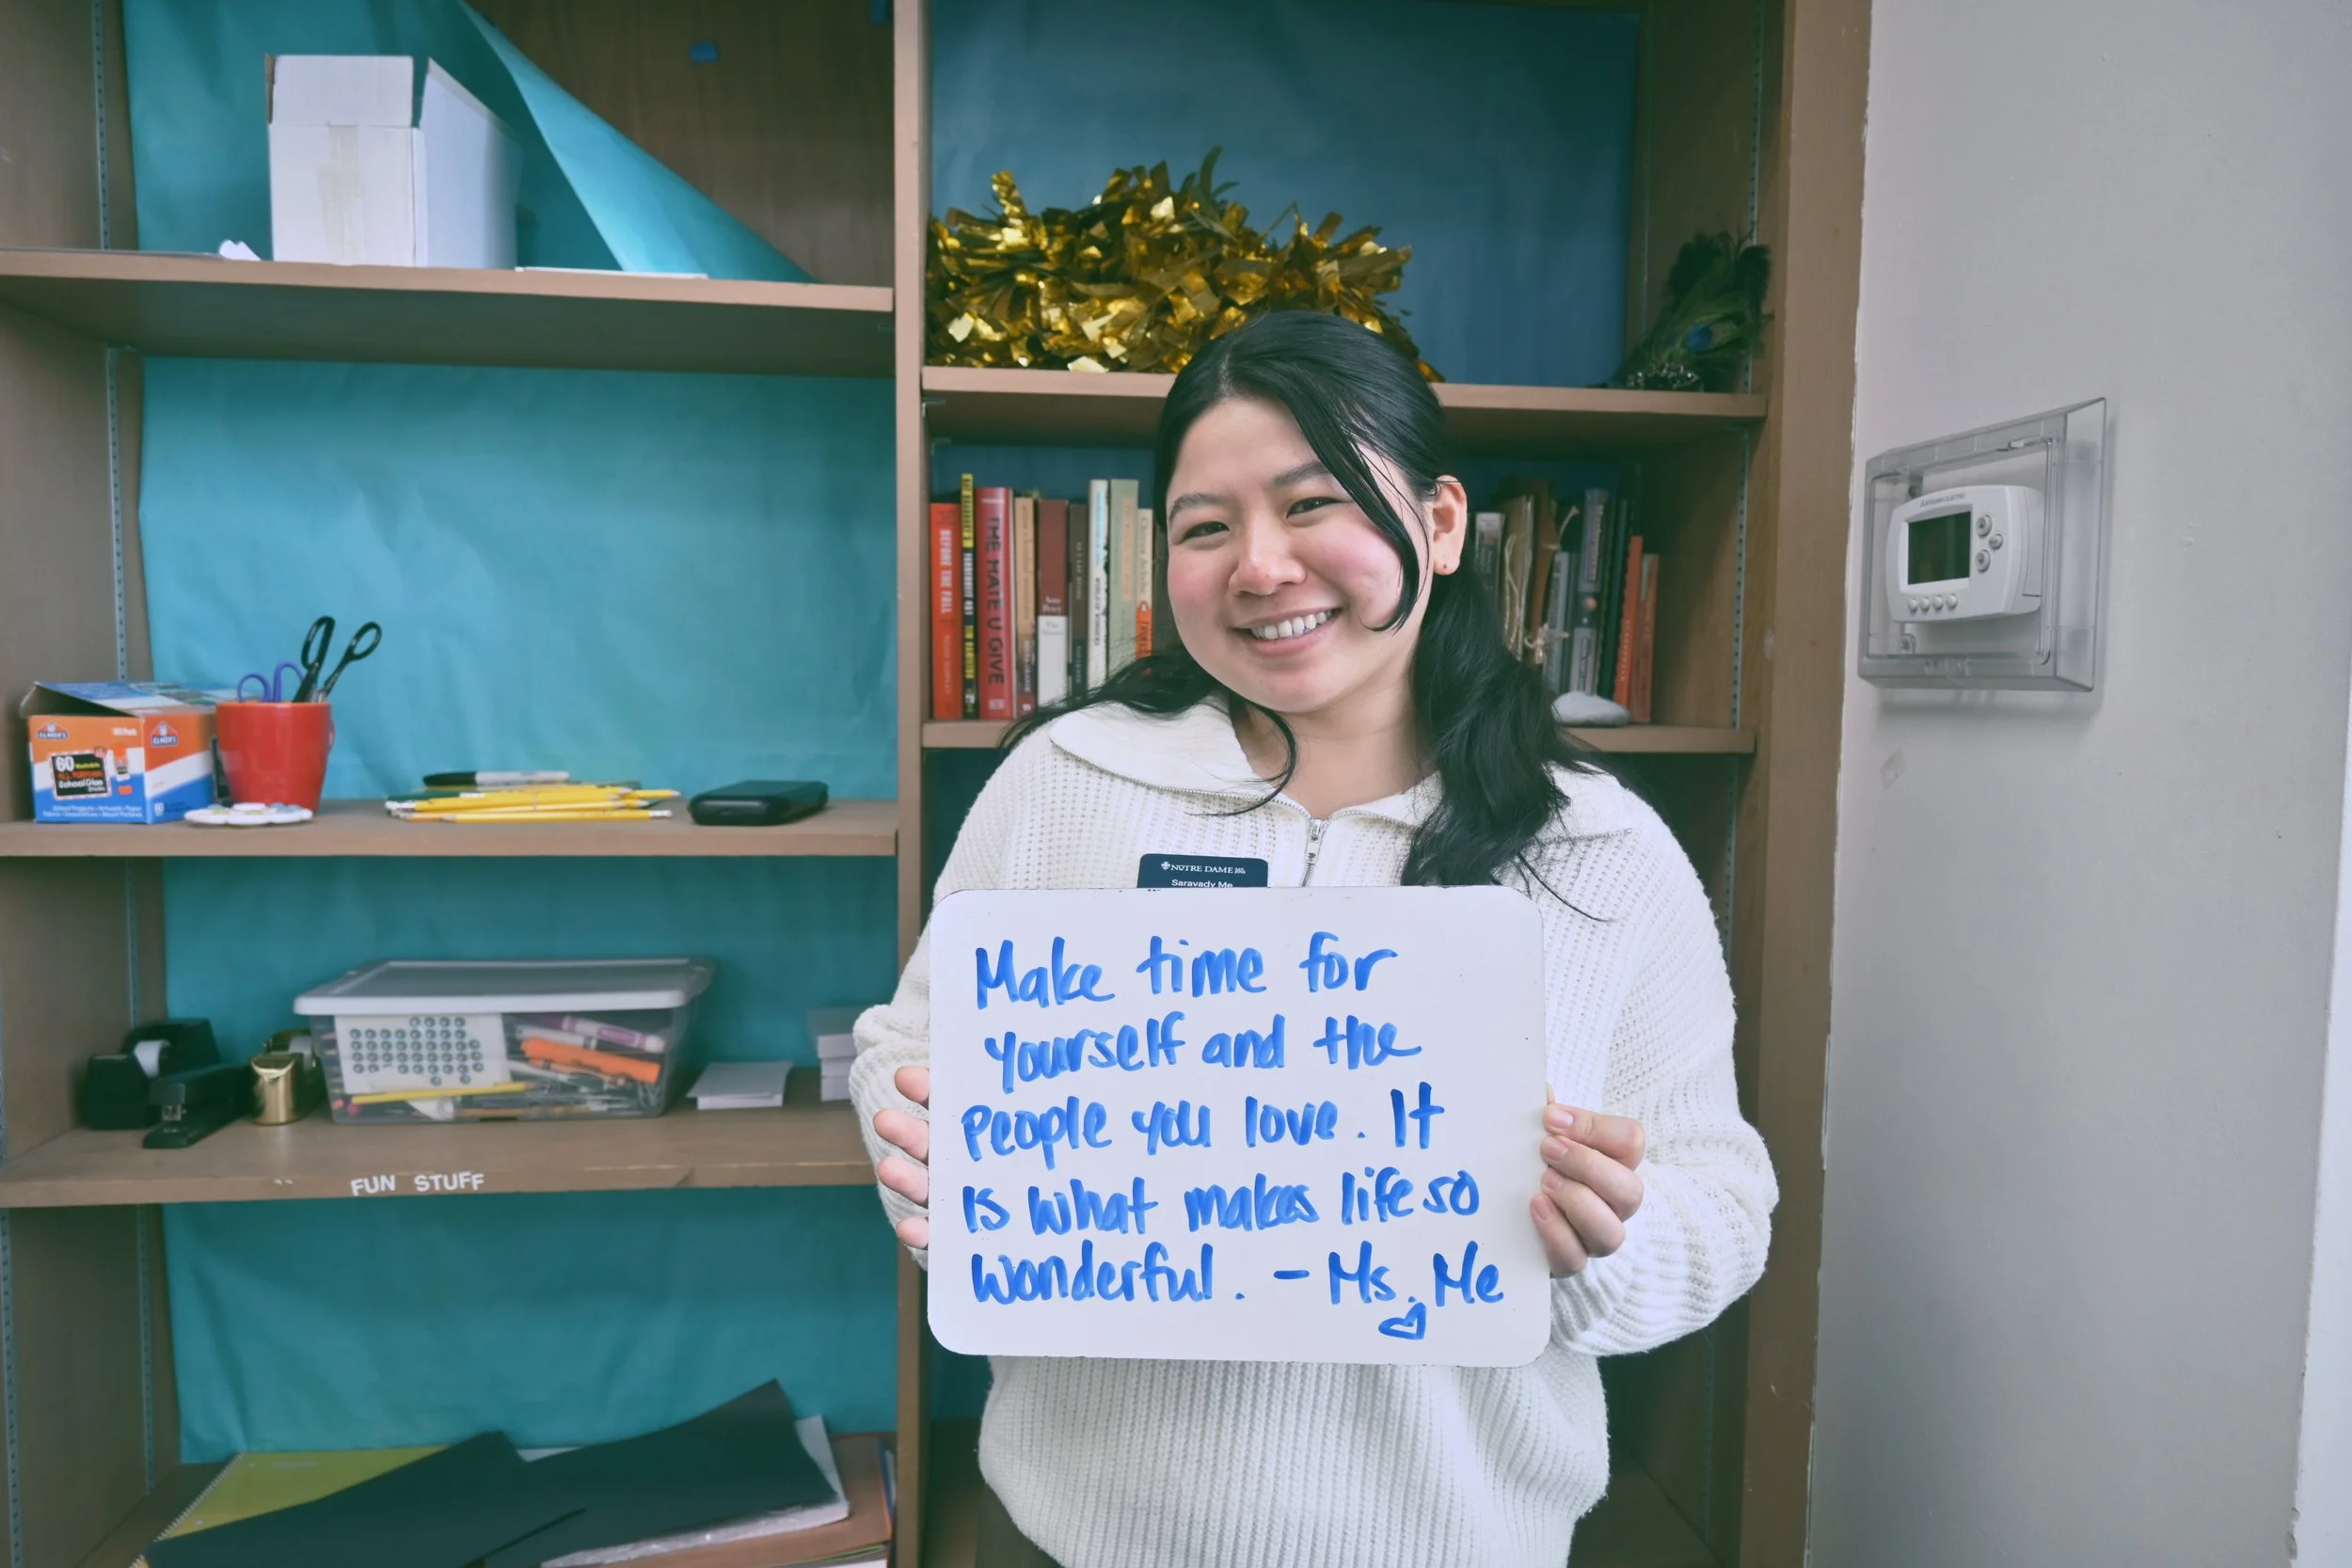 BEFORE THE FALL
THE HATE U GIVE
ELMER'S
ELMER'S
60 Washable
ALL PURPOSE
School Glue
Sticks
60
NOTRE DAME
Saravady Me
Make time for
yourself and the
people you love. It
is what makes life so
wonderful. - Ms. Me
FUN STUFF